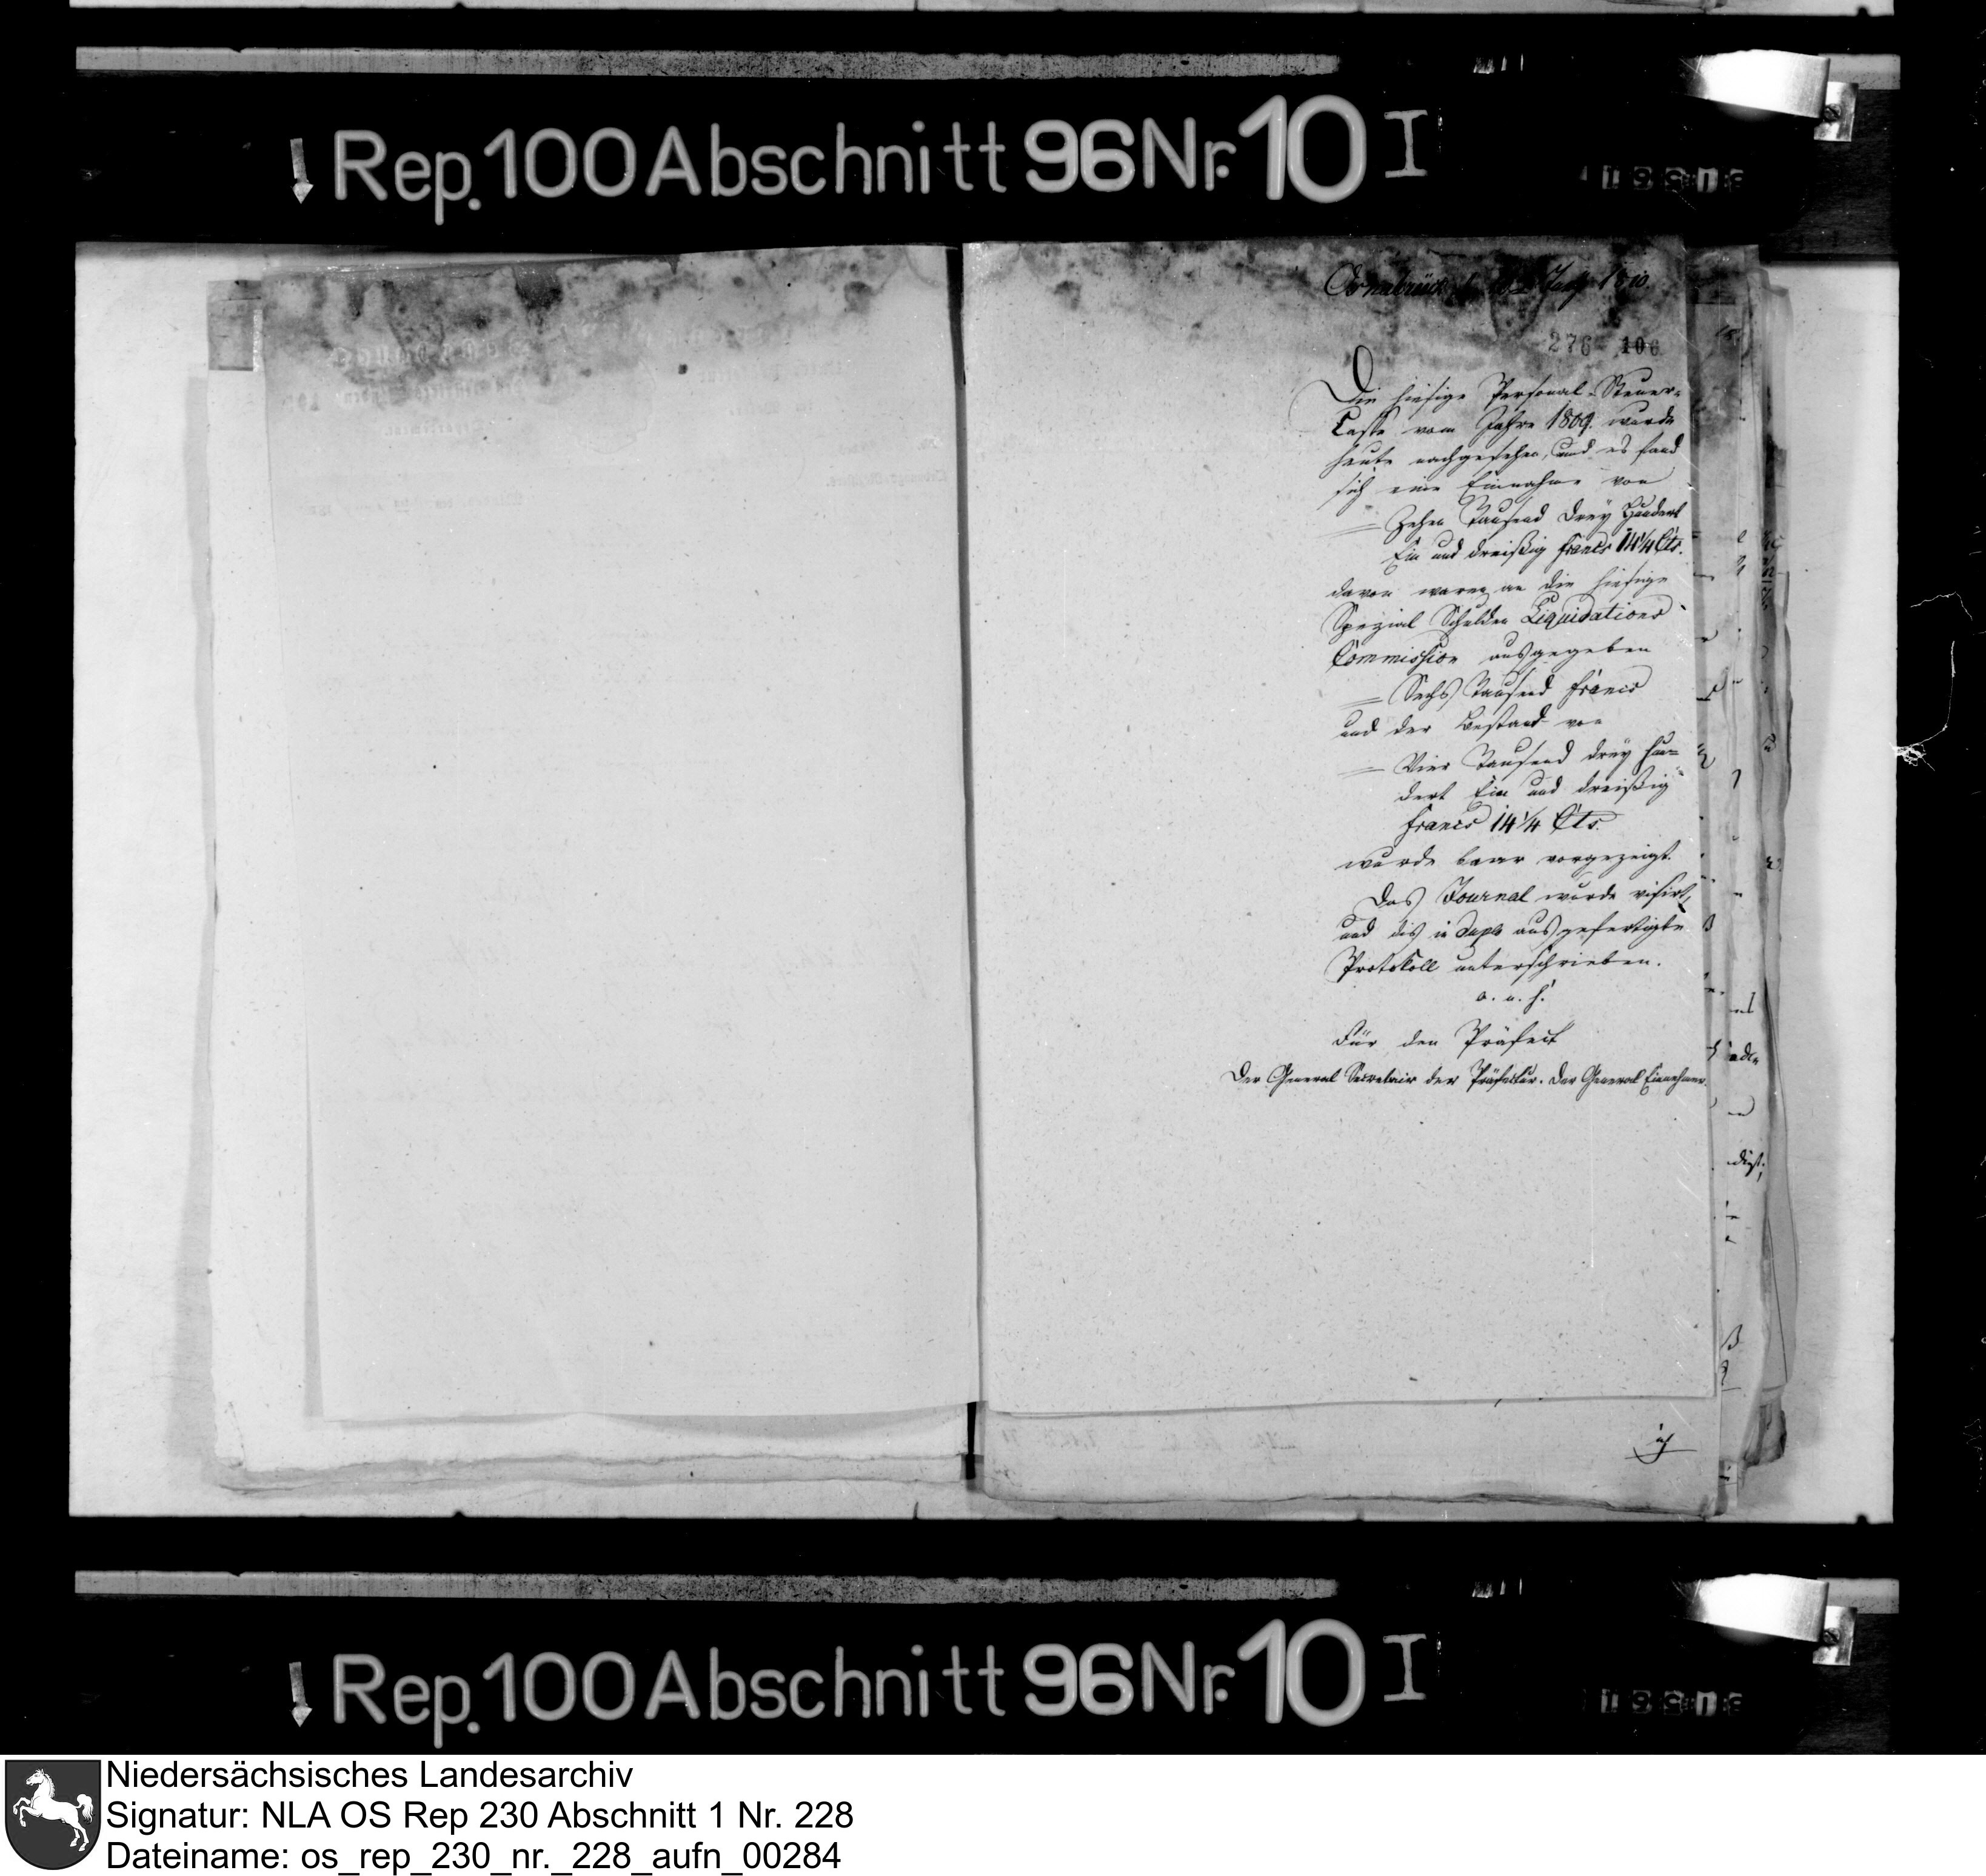 Rep. 100 Abschnitt 96 Nr. 10 I
Osnabrück 1810
276 106
Die hiesige Personal-Steuer-
Casse vom Jahre 1809. wurde
heute nachgesehen, und es fand
sich eine Einnahme von
= Zehen Tausend Drey Hundert
Ein und dreißig Francs 14¼ Cts.
davon waren an die hiesige
Spezial Schulden Liquidations
Commission ausgegeben
= Sechs Tausend Francs
und der Bestand von
= Vier Tausend drey Hun-
dert Ein und dreißig
Francs 14¼ Cts.
wurde baar vorgezeigt.
Das Journal wurde visirt,
und dis in Duplo ausgefertigte
Protokoll unterschrieben.
a. u. s.
Für den Präfect
Der General Secretair der Präfectur. Der General Einnehmer.
Rep. 100 Abschnitt 96 Nr. 10 I
Niedersächsisches Landesarchiv
Signatur: NLA OS Rep 230 Abschnitt 1 Nr. 228
Dateiname: os_rep_230_nr._228_aufn_00284